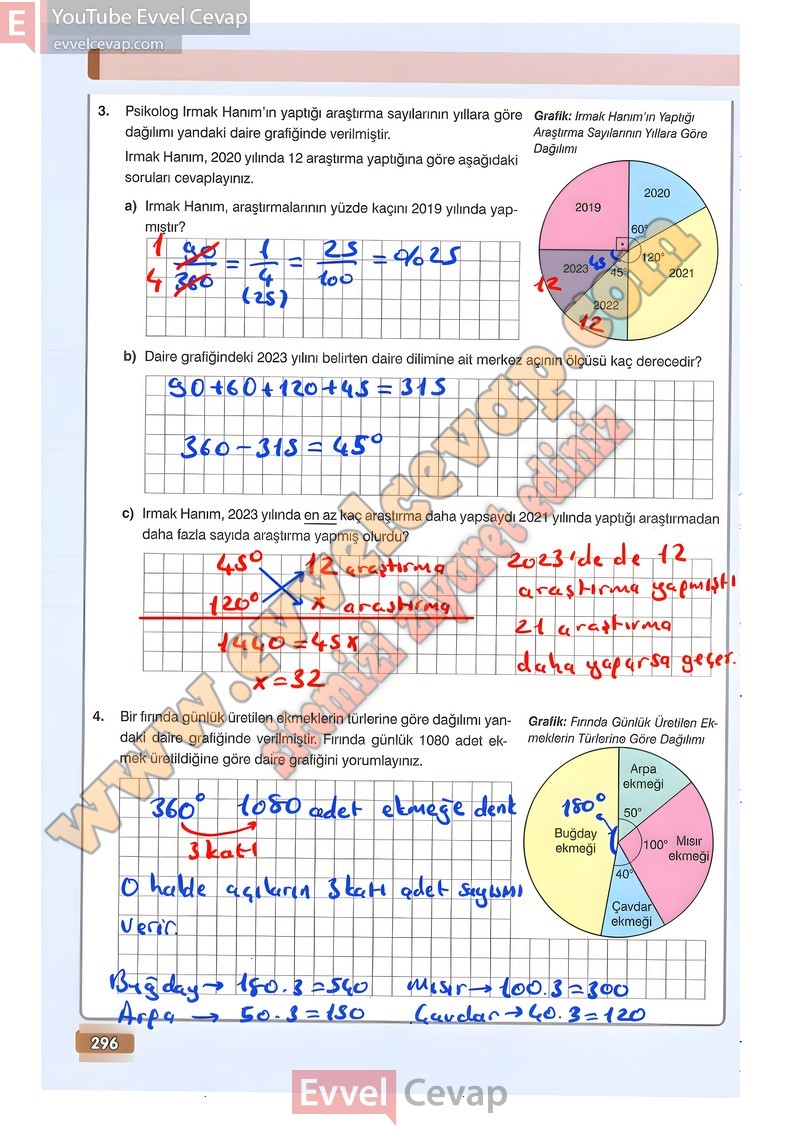 YouTube Evvel Cevap
evvelcevap.com
3. Psikolog Irmak Hanım'ın yaptığı araştırma sayılarının yıllara göre
dağılımı yandaki daire grafiğinde verilmiştir.
Irmak Hanım, 2020 yılında 12 araştırma yaptığına göre aşağıdaki
soruları cevaplayınız.
Grafik: Irmak Hanım'ın Yaptığı
Araştırma Sayılarının Yıllara Göre
Dağılımı
2019
2020
60°
120°
2021
2023
45
45°
2022
12
12
a) Irmak Hanım, araştırmalarının yüzde kaçını 2019 yılında yap-
mıştır?
1 90 / 4 360 = 1/4 = 25/100 = %25
(25)
b) Daire grafiğindeki 2023 yılını belirten daire dilimine ait merkez açının ölçüsü kaç derecedir?
90+60+120+45=315
360-315=45°
c) Irmak Hanım, 2023 yılında en az kaç araştırma daha yapsaydı 2021 yılında yaptığı araştırmadan
daha fazla sayıda araştırma yapmış olurdu?
45° 12 araştırma
120° x araştırma
1440=45x
x=32
2023'de de 12
araştırma yapmıştı
21 araştırma
daha yaparsa geçer.
4. Bir fırında günlük üretilen ekmeklerin türlerine göre dağılımı yan-
daki daire grafiğinde verilmiştir. Fırında günlük 1080 adet ek-
mek üretildiğine göre daire grafiğini yorumlayınız.
Grafik: Fırında Günlük Üretilen Ek-
meklerin Türlerine Göre Dağılımı
Arpa
ekmeği
180°
50°
Buğday
ekmeği
100° Mısır
ekmeği
40°
Çavdar
ekmeği
360° 1080 adet ekmeğe denk
3 katı
O halde açıların 3 katı adet sayısını
verir.
Buğday → 180.3=540 Mısır → 100.3=300
Arpa → 50.3=150 Çavdar → 40.3=120
296
www.evvelcevap.com
sitemizi ziyaret ediniz
Evvel Cevap